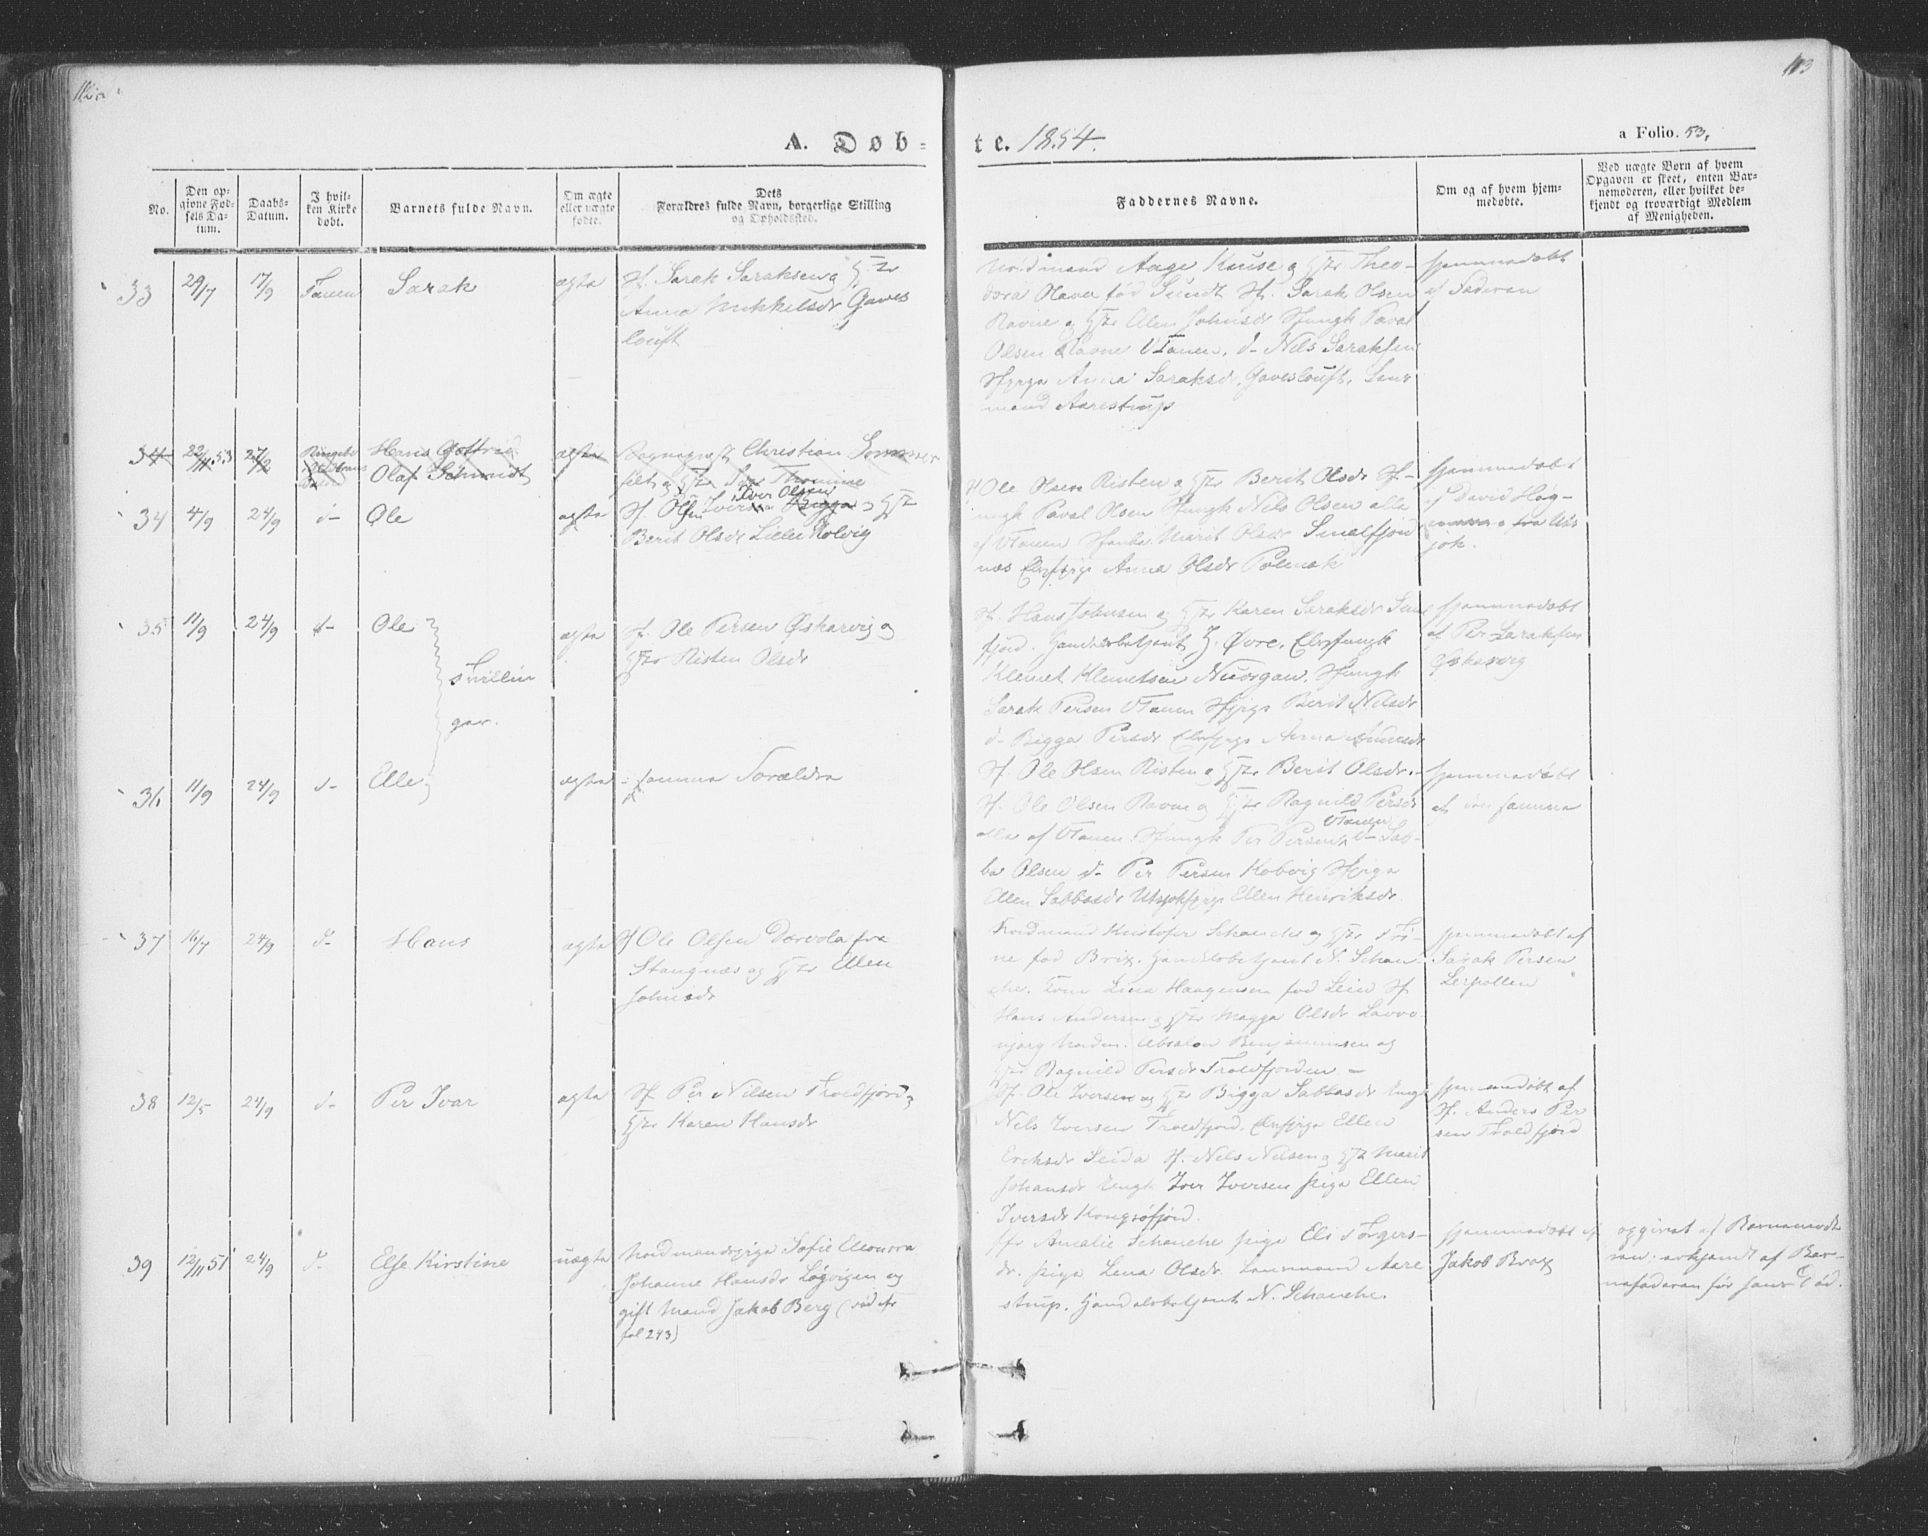 112
113
A. Døb-
te. 1854.
a Folio. 53.
No.
Den op-
givne Fød-
sels Da-
tum.
Daabs-
Datum.
I hvil-
ken Kirke
døbt.
Barnets fulde Navn.
Om ægte
eller uægte
født.
Dets
Forældres fulde Navn, borgerlige Stilling
og Opholdssted.
Faddernes Navne.
Om og af hvem hjem-
medøbte.
Ved uægte Børn af hvem
Opgaven er skeet, enten Bar-
nemoderen, eller hvilket be-
kjendt og troværdigt Medlem
af Menigheden.
33 29/7 17/9 Tanen Sarak ægte Sf. Sarak Saraksen og Hst
Anna Mikkelsdr Gaves
louft
Nordmand Aage Kruse og Hst Theo-
dora Olava fød Sundt Sf. Sarak Olsen
Ravne og Hst Ellen Johnsdr Sfungk Paval
Olsen Ravne VTanen, d- Nils Saraksen
Sfpige Anna Saraksdr, Gaveslouft, Lens
mand Aarestrup
hjemmedøbt
af Faderen
34 22/11 53 27/2 Hans Gottfried
Olaf Schmidt ægte Sognepræst Christian Sommer
felt og Hst
34 4/9 24/9 d- Ole ægte Sf. Ole Iversen Iver Olsen Bigga og Hst
Berit Olsdr Lille Molvig
Sf Ole Olsen Risten og Hst Berit Olsdr Sf-
ungk Paval Olsen Sfungk Nils Olsen alle
af VTanen Marit Olsdr Smalfjord
næs Elvfpige Anna Olsdr Polmak
hjemmedøbt
af David Høg-
fra Uts
jok.
35 11/9 24/9 d- Ole ægte Sf. Ole Persen Øskarvig og
Hst Risten Olsdr
Tvillin
ger.
Sf. Hans Johnsen og Hst Karen Saraksdr
fjord. Handelsbetjent H. Øvre, Elvsfungk
Klemet Klemetsen Nuorgan, Sfungk
Sarak Persen VTanen Sfpige Berit Nilsdr
d- Bigga Persdr Elvfpige Anna
hjemmedøbt
af Per Saraksen
Øskarvig
36 11/9 24/9 d- Elle ægte samme Forældre
Sf. Ole Olsen Risten og Hst Berit Olsdr.
Sf. Ole Olsen Ravne og Hst Ragnild Persdr
alle af VTanen. Sfungk Per Persen VTanen d- Sab-
ba Olsen d- Per Persen Kobvig Sfpige
Ellen Sabbasdr Utsjokfpige Ellen Henriksdr.
hjemmedøbt
af den samme
37 16/7 24/9 d- Hans ægte Sf Ole Olsen Dærvola fra
Stangnæs og Hst Ellen
Johnsdr
Nordmand Kristofer Schanche og Hst Tri-
ne fød Brix. Handelsbetjent N. Schan-
che. Kone Lina Haagensen fød Leim Sf
Hans Andersen og Hst Magga Olsdr Lavvo-
njarg Norden. Absalon Benjaminsen og
Hst Ragnild Persdr Troldfjorden -
hjemmedøbt af
Sarak Persen
Leirpollen
38 12/5 24/9 d- Per Ivar ægte Sf. Per Nilsen Troldfjord og
Hst Karen Hansdr
Sf. Ole Iversen og Hst Bigga Sabbasdr Ungk
Nils Iversen Troldfjord, Elvfpige Ellen
Ericksdr Seida Sf. Nils Nilsen og Hst Marit
Johansdr Ungk Iver Iversen Pige Ellen
Iversdr Kongsfjord.
hjemmedøbt af
Sf. Anders Per
sen Troldfjord
39 12/11 51 24/9 d- Else Kirstine uægte Nordmandspige Sofie Eleonora
Johanne Hansdr Løgvigen og
gift Mand Jakob Berg (
fol 243)
Fr Amalie Schanche Pige Eli Torgers-
dr. Pige Lena Olsdr Lensmand Aare
strup. Handelsbetjent N. Schanche.
hjemmedøbt af
Jakob Brox
opgivet af Barnemode
ren. erkjendt af Bar-
nefaderen før hans Død.